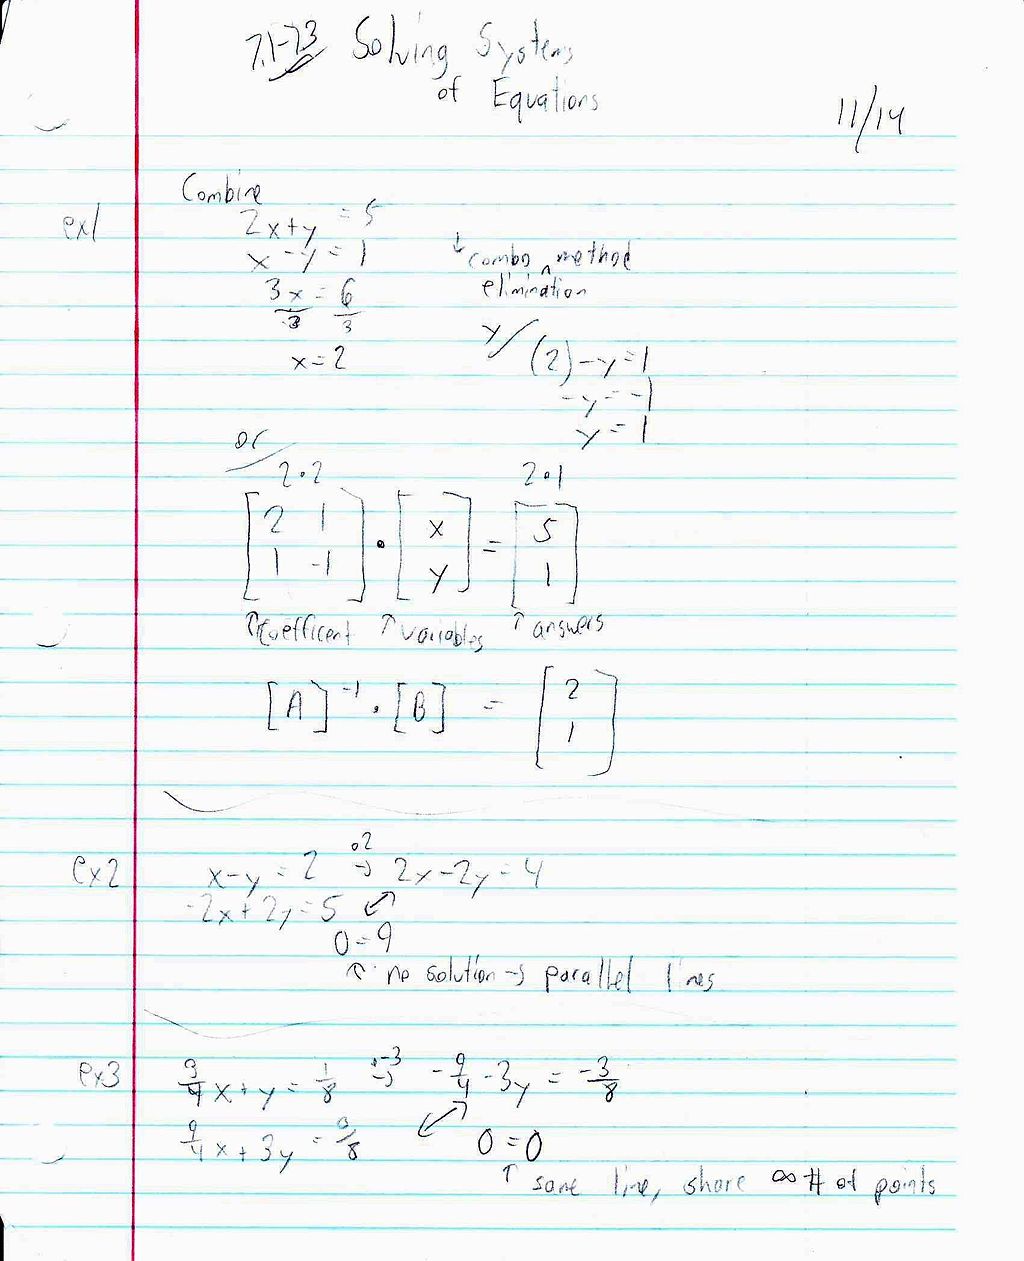 7.1-7.3 Solving Systems
of Equations
11/14
Combine
ex1
2x+y = 5
x - y = 1
3x = 6
3 3
x = 2
↓ combo ^ method
elimination
y/ (2) - y = 1
-y = -1
y = 1
or
2•2 2•1
[2 1 [x [5
1 -1] • y] = 1]
↑Coefficent ↑ variables ↑ answers
[A]⁻¹ • [B] = [2
1]
ex2 x-y = 2 •2→ 2y-2y = 4
-2x + 2y = 5 ↙↗
0 = 9
↑ no solution → parallel lines
ex3 3/4 x + y = 1/8 •-3→ -9/4 - 3y = -3/8
9/4 x + 3y = 3/8 ↙↗ 0 = 0
↑ same line, share ∞ # of points